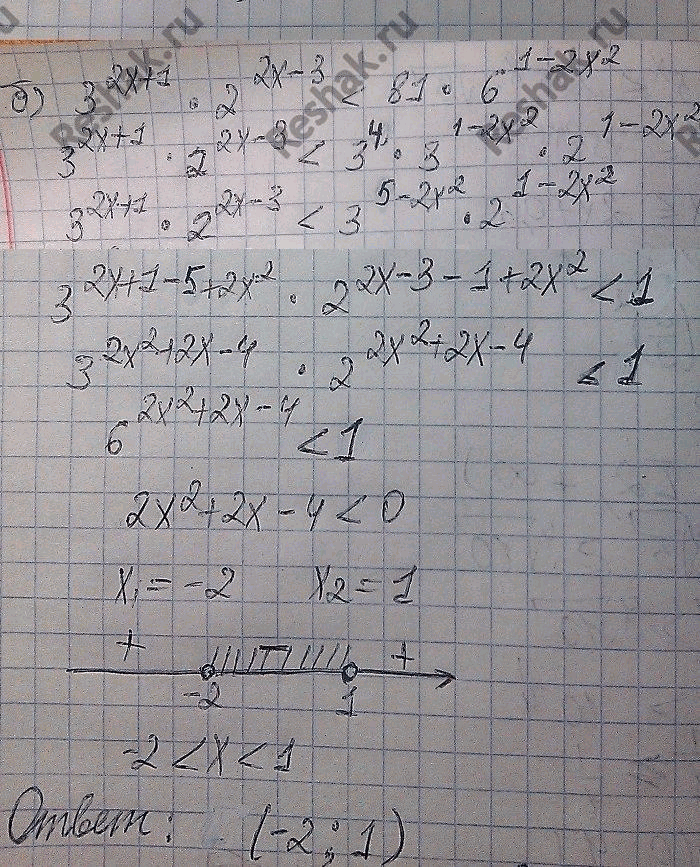 б) 3^{2x+1} · 2^{2x-3} < 81 · 6^{1-2x²}
3^{2x+1} · 2^{2x-3} < 3^4 · 3^{1-2x²} · 2^{1-2x²}
3^{2x+1} · 2^{2x-3} < 3^{5-2x²} · 2^{1-2x²}
3^{2x+1-5+2x²} · 2^{2x-3-1+2x²} < 1
3^{2x²+2x-4} · 2^{2x²+2x-4} < 1
6^{2x²+2x-4} < 1
2x²+2x-4 < 0
x₁ = -2 x₂ = 1
+ − +
-2 1
-2 < x < 1
Ответ: (-2; 1)
Reshak.ru
Reshak.ru
Reshak.ru